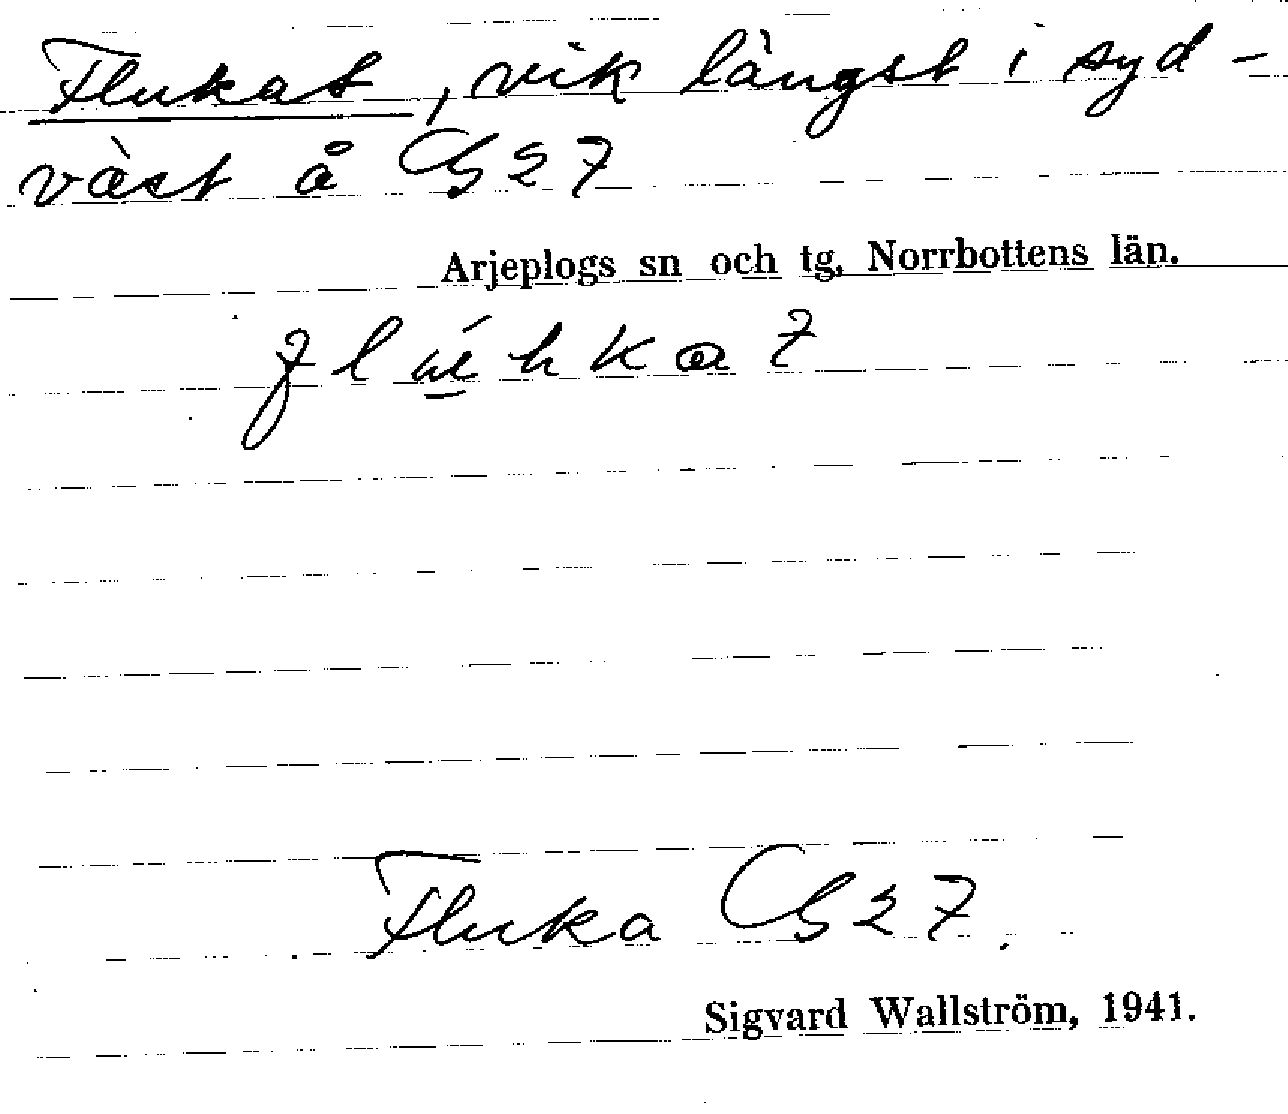 Flukat, vik längst i syd-
väst å G27
Arjeplogs sn och tg, Norrbottens län.
Fluka G27.
Sigvard Wallström, 1941.